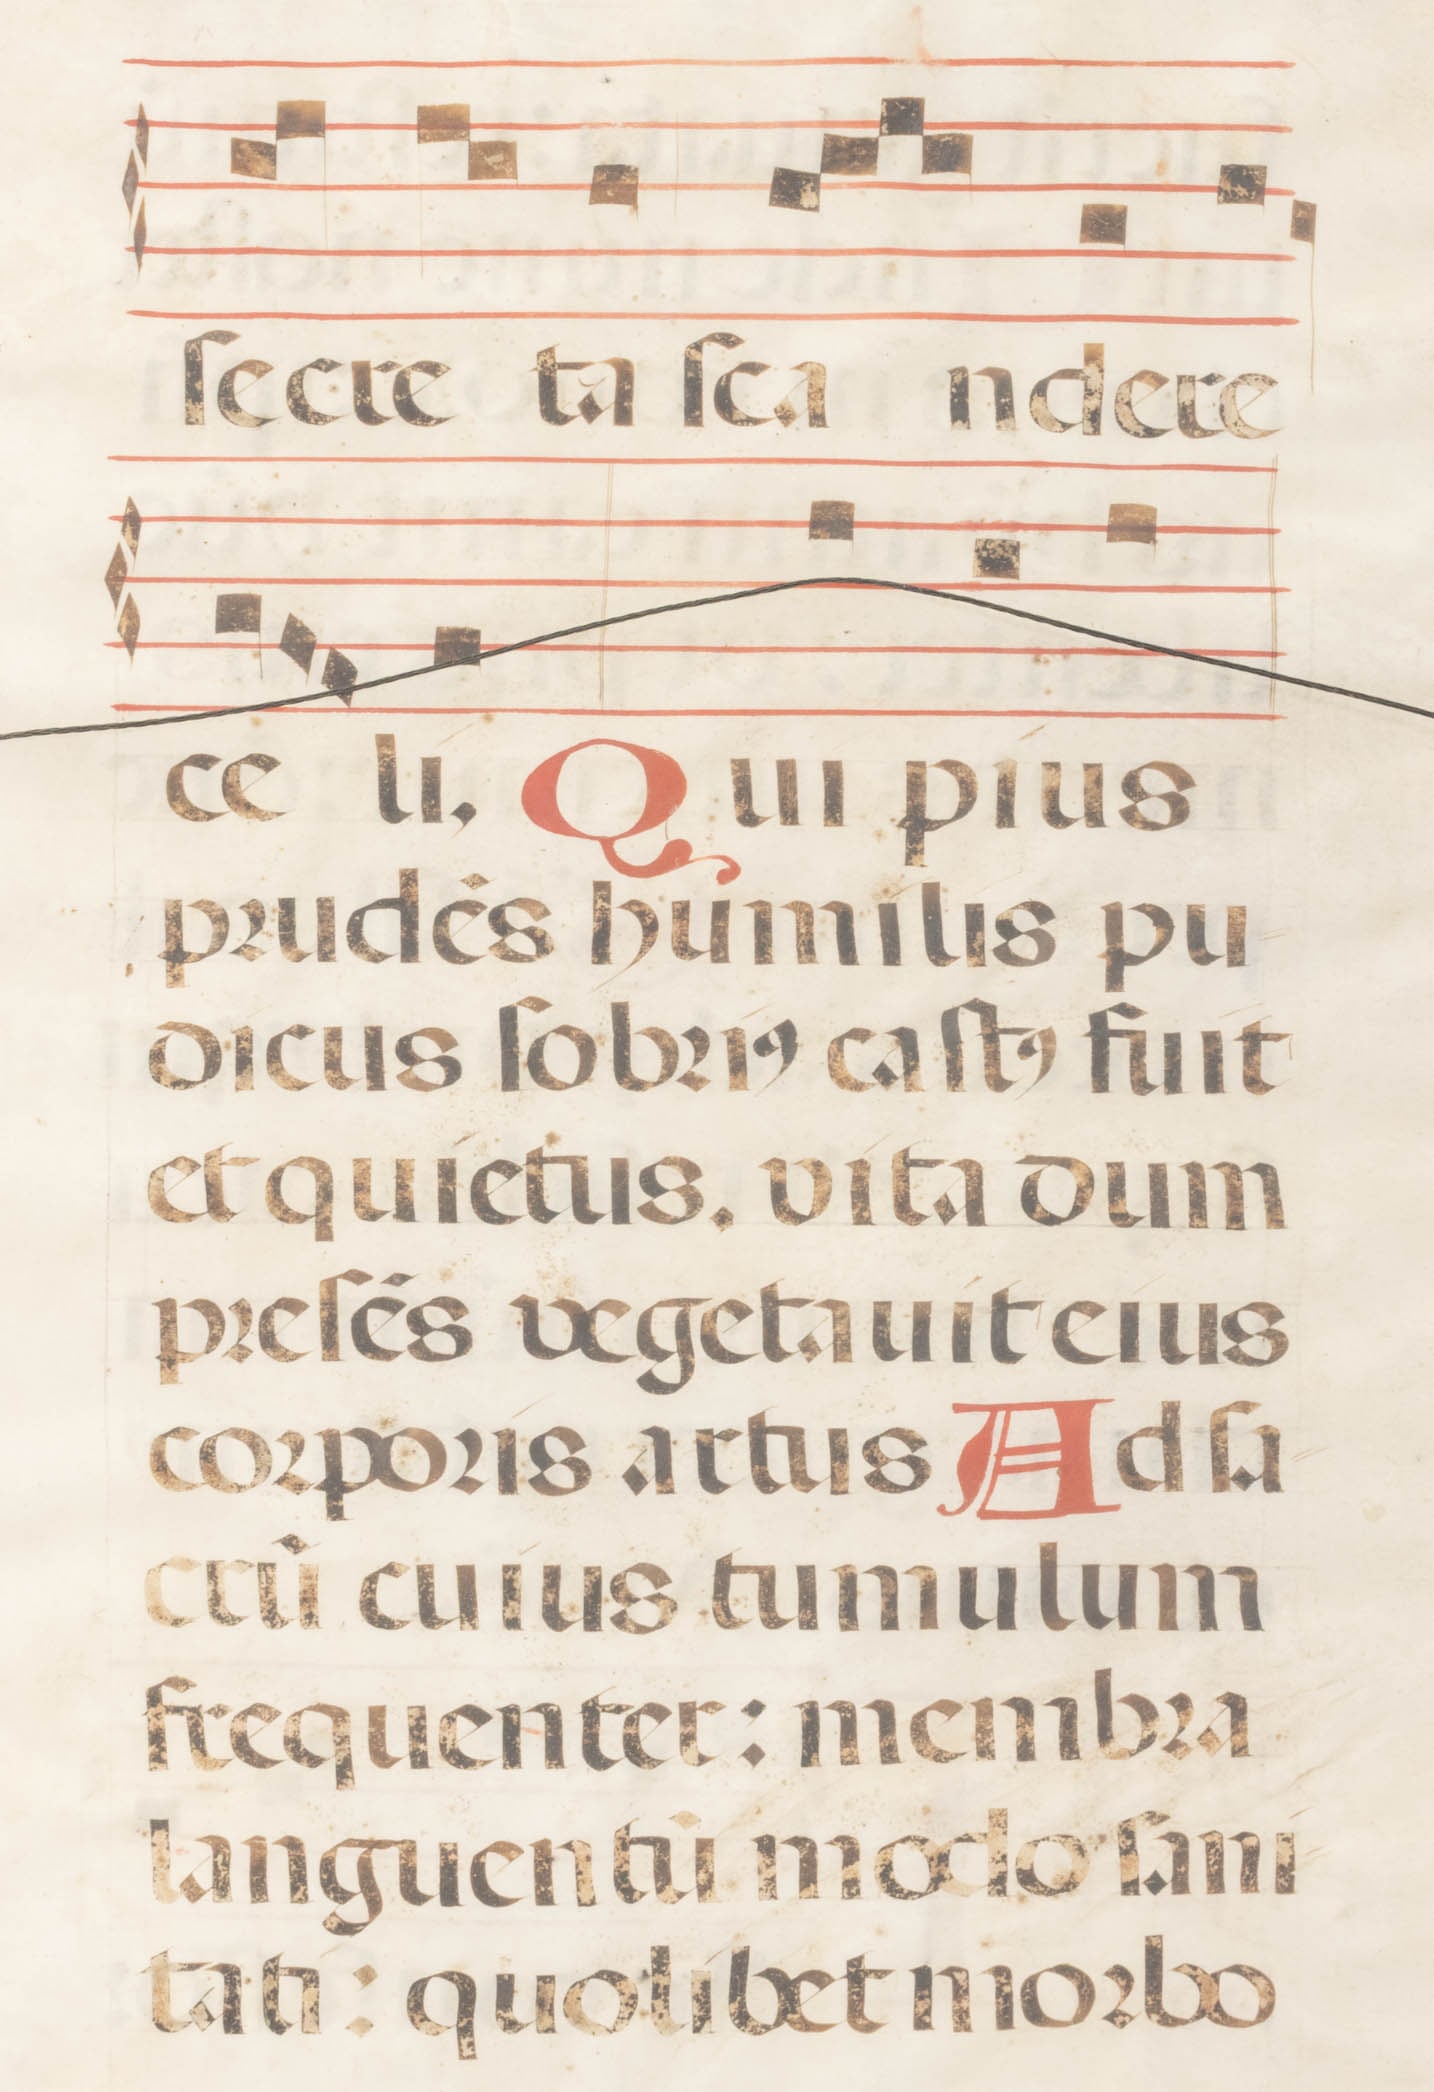 secre ta sca ndere
ce li, Qui pius
prudēs humilis pu
dicus sobriꝰ castꝰ fuit
et quietus. vita dum
presēs vegetauit eius
corporis artus Ad sa
crū cuius tumulum
frequenter: membra
languentū modo sani
tati: quolibet morbo